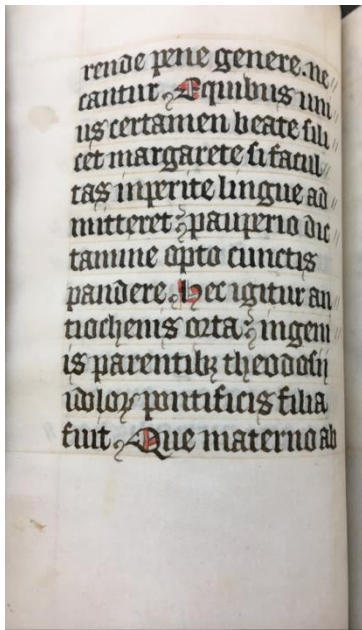 rende pene genere. ne
cantur. Equibus uni
us certamen beate sili
cet margarete si facul
tas inperite lingue ad
mitteret; pauperio dic
tamine opto cunctis
pandere. Hec igitur an
tiochenis orta; ingeni
is parentibꝫ theodosii
idoloꝝ pontificis filia
fuit. Que materno ab